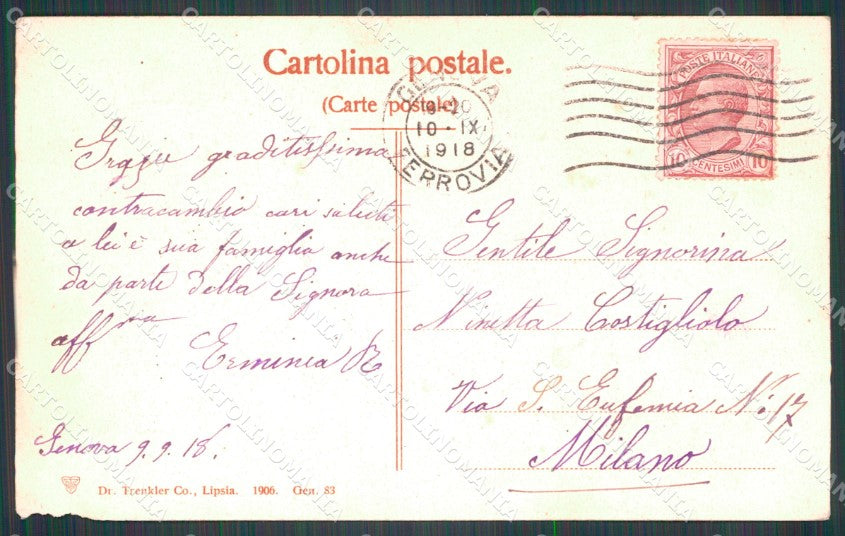 Cartolina postale.
(Carte postale)
GENOVA
10 · IX
1918
FERROVIA
POSTE ITALIANE
10 CENTESIMI 10
Grazie graditissima
contracambio cari saluti
a lei e sua famiglia anche
da parte della Signora
aff ma
Erminia R
Genova 9.9.18.
Gentile Signorina
Ninetta Costigliolo
Via S. Eufemia No: 17
Milano
Dr. Trenkler Co., Lipsia. 1906. Gen. 83
CARTOLINOMANIA